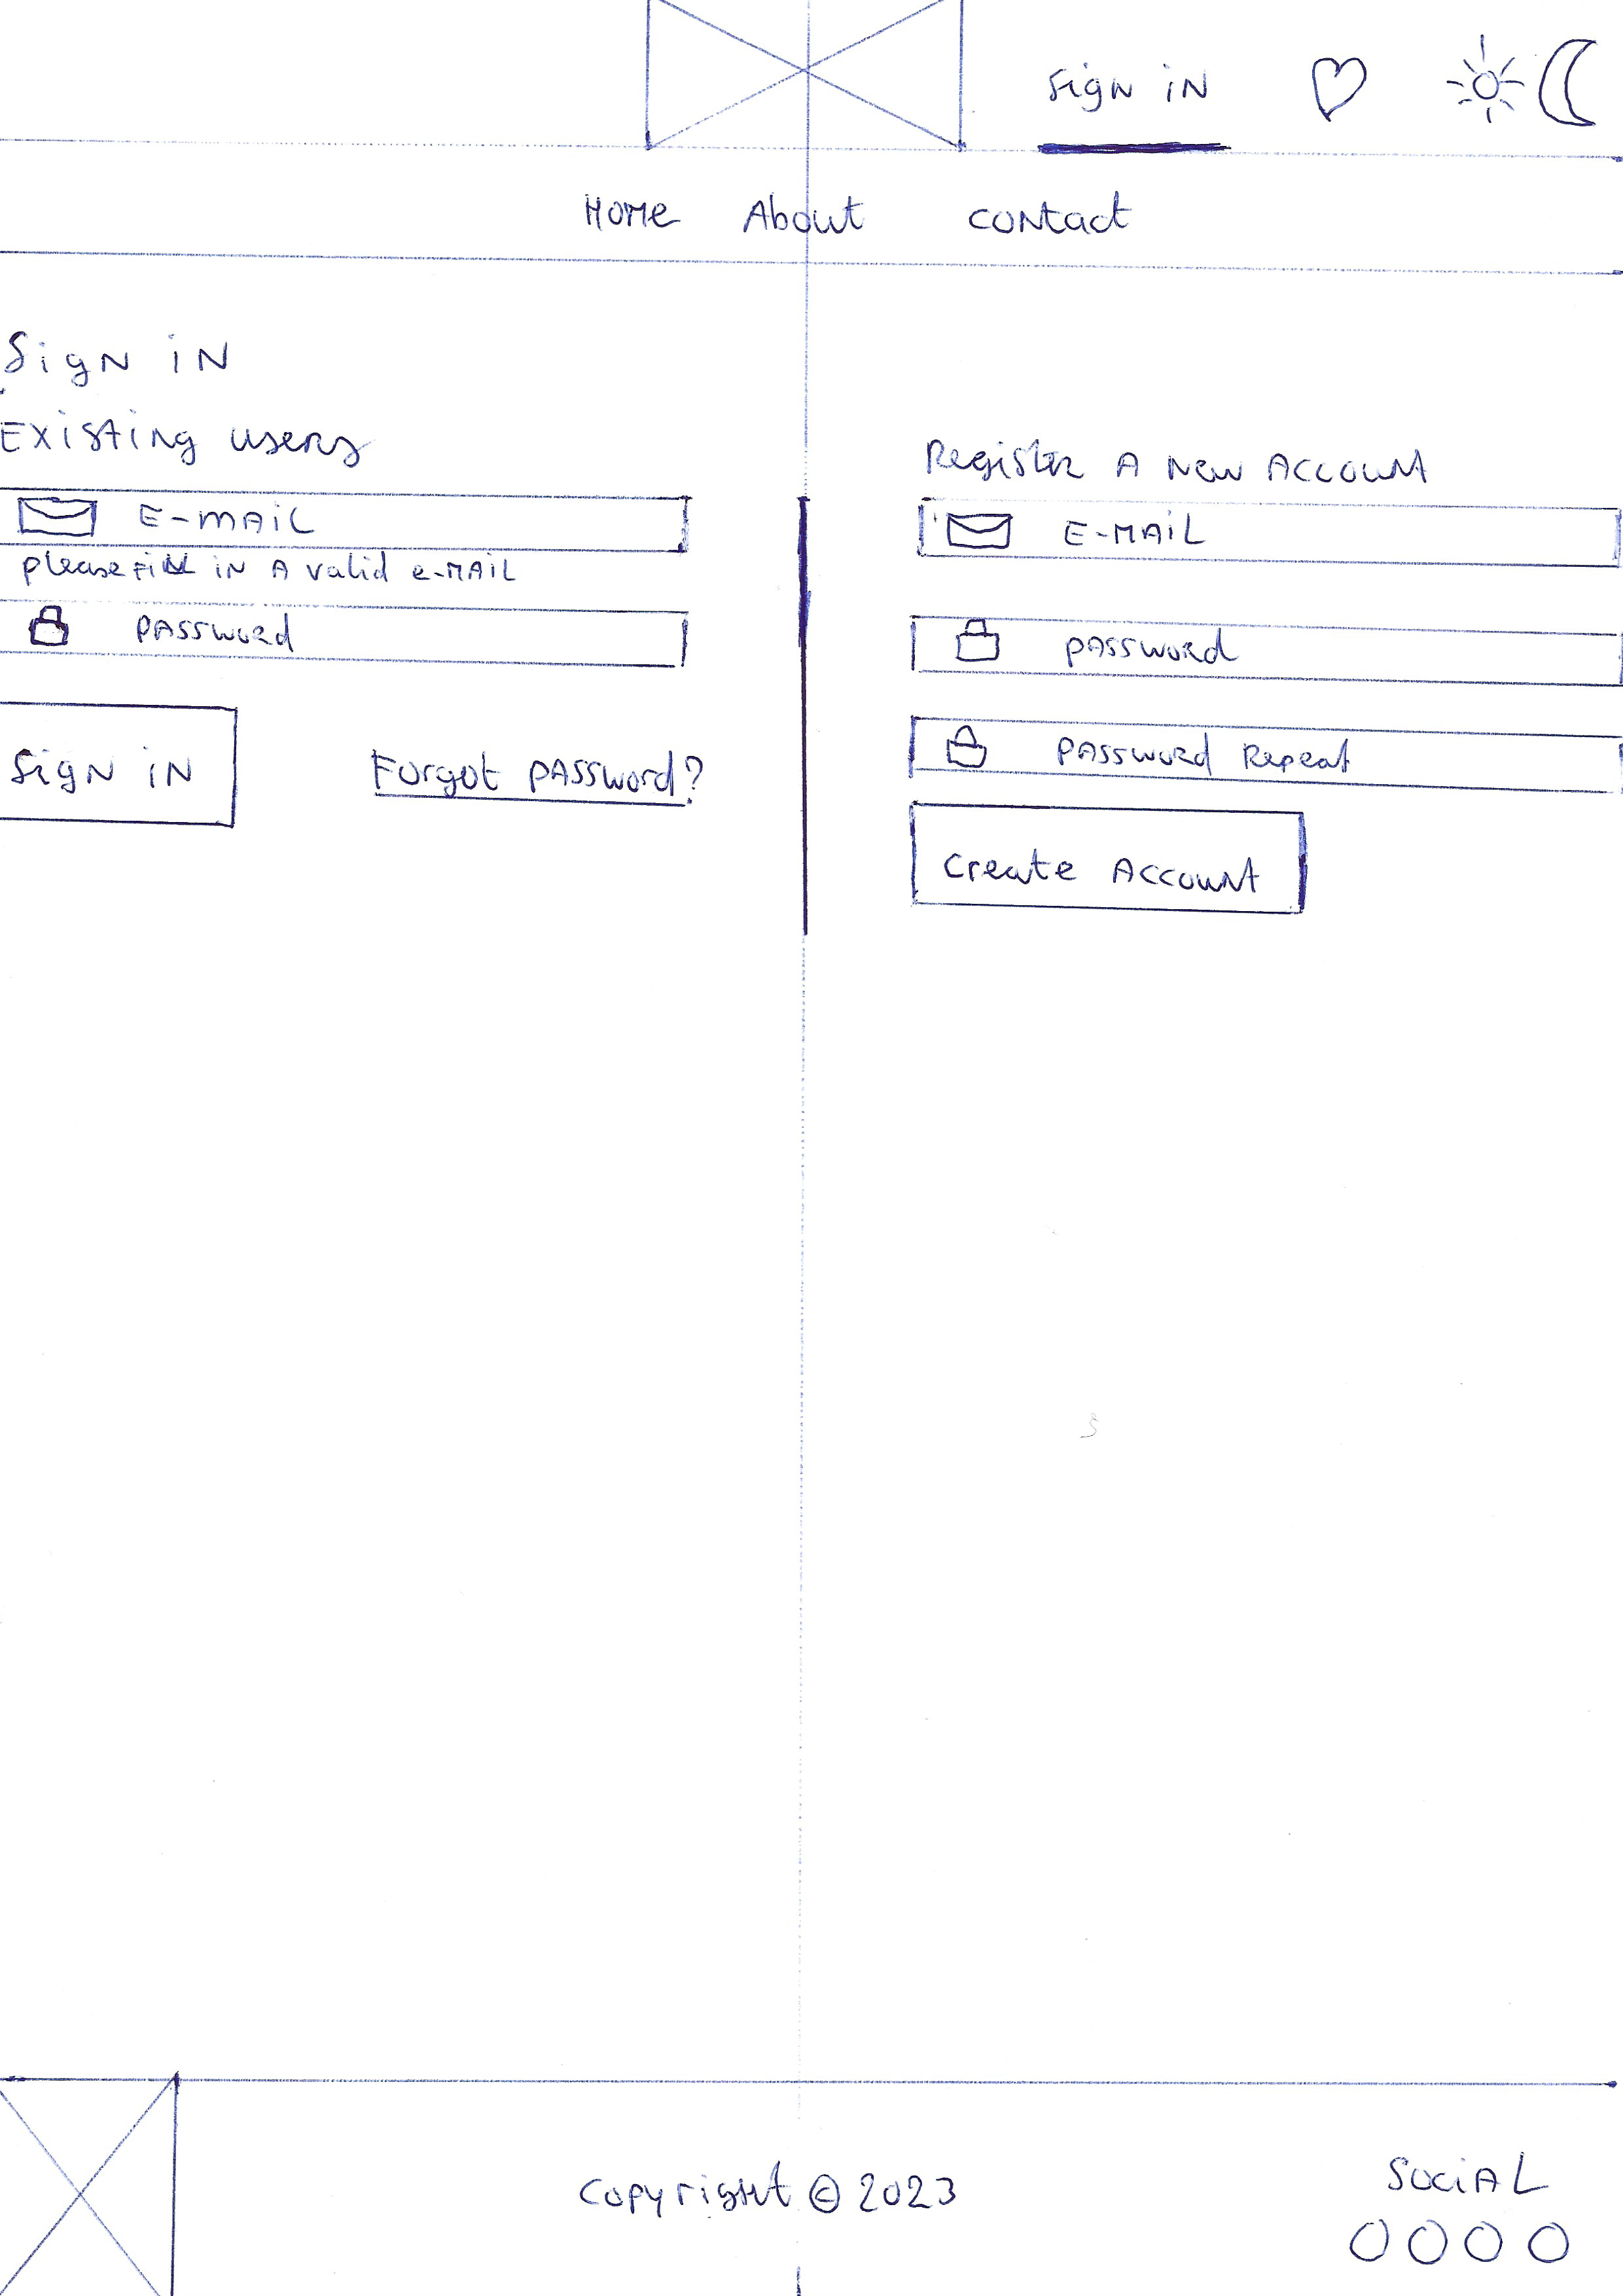 Sign in
Home About Contact
Sign in
Existing users
E-mail
please fill in a valid e-mail
password
Sign in
Forgot password?
Register a new account
E-mail
password
password repeat
Create Account
Copyright © 2023
Social